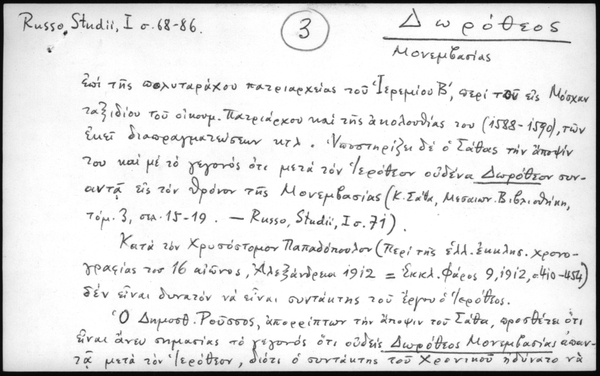 Russo, Studii, I σ. 68-86.
3
Δωρόθεος
Μονεμβασίας
ἐπὶ τῆς πολυταράχου πατριαρχείας τοῦ Ἱερεμίου Β', περὶ τοῦ εἰς Μόσχαν
ταξιδίου τοῦ οἰκουμ. Πατριάρχου καὶ τῆς ἀκολουθίας του (1588-1590), τῶν
ἐκεῖ διαπραγματεύσεων κτλ. Ὑποστηρίζει δὲ ὁ Σάθας τὴν ἄποψίν
του καὶ μὲ τὸ γεγονὸς ὅτι μετὰ τὸν Ἱερόθεον οὐδένα Δωρόθεον συν-
αντᾷ εἰς τὸν θρόνον τῆς Μονεμβασίας (Κ. Σάθα, Μεσαιων. Βιβλιοθήκη,
τόμ. 3, σελ. 15-19. — Russo, Studii, I σ. 71).
Κατὰ τὸν Χρυσόστομον Παπαδόπουλον (Περὶ τῆς ἑλλ. ἐκκλησ. χρονο-
γραφίας τοῦ 16 αἰῶνος, Ἀλεξάνδρεια 1912 = Ἐκκλ. Φάρος 9, 1912, σ. 410-454)
δὲν εἶναι δυνατὸν νὰ εἶναι συντάκτης τοῦ ἔργου ὁ Ἱερόθεος.
Ὁ Δημοσθ. Ροῦσσος, ἀπορρίπτων τὴν ἄποψιν τοῦ Σάθα, προσθέτει ὅτι
εἶναι ἄνευ σημασίας τὸ γεγονὸς ὅτι οὐδεὶς Δωρόθεος Μονεμβασίας ἀπαν-
τᾷ μετὰ τὸν Ἱερόθεον, διότι ὁ συντάκτης τοῦ Χρονικοῦ ἠδύνατο νὰ